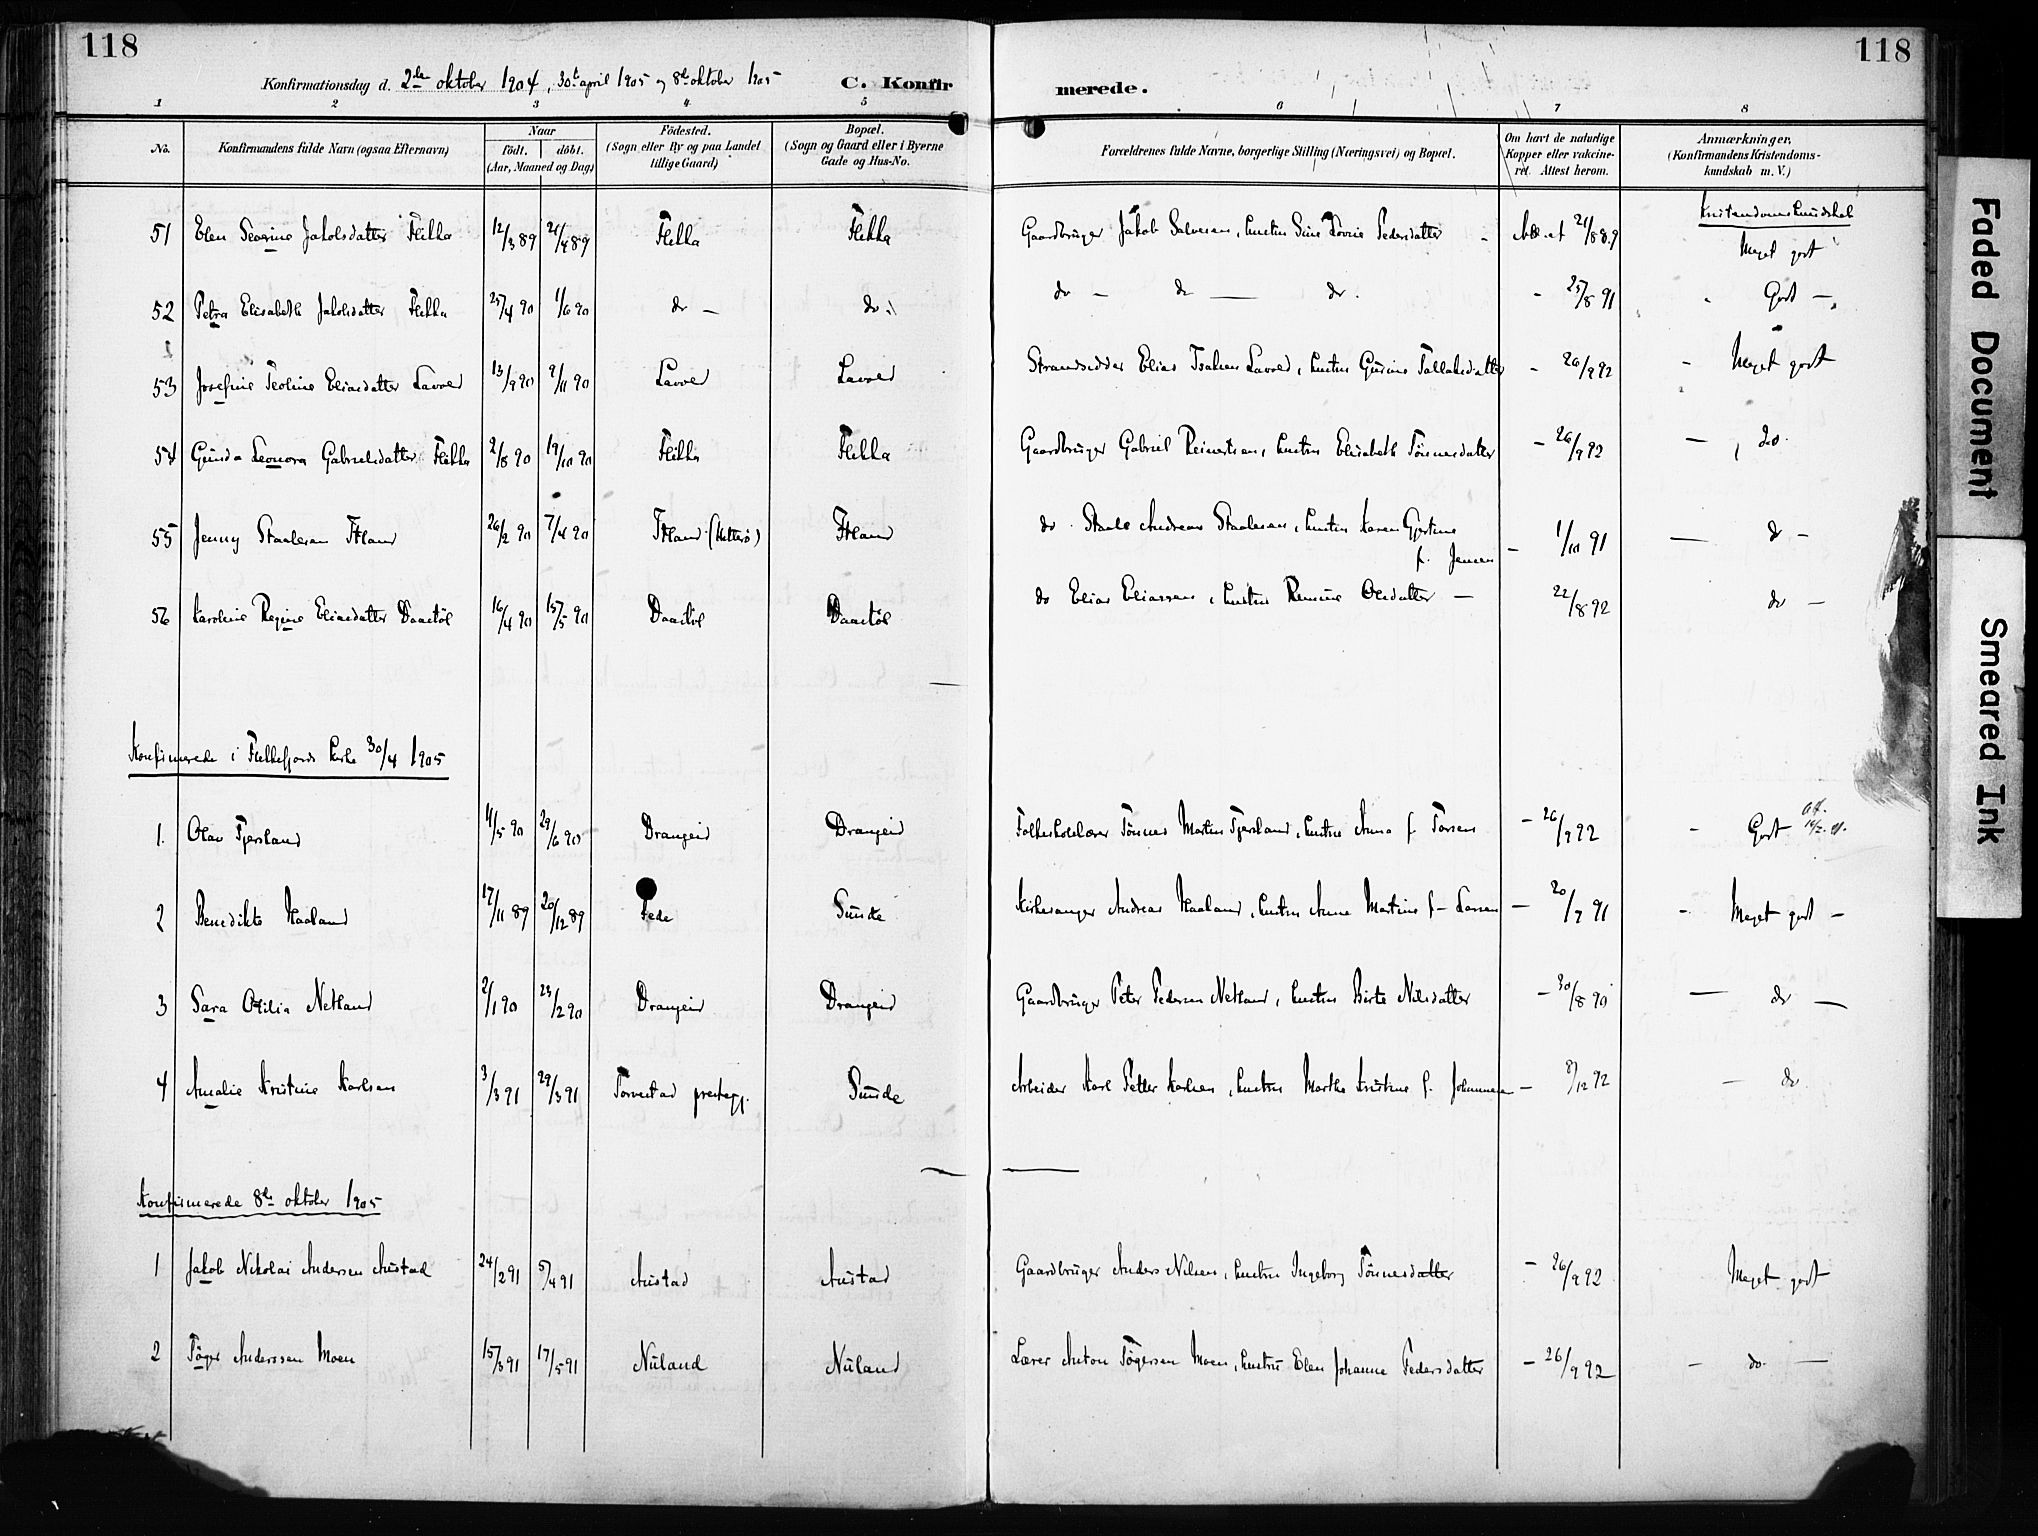 118
118
Konfirmationsdag d. 2de oktober 1904, 30te april 1905 og 8de oktober 1905
C. Konfir
merede.
1 2 3 4 5 6 7 8
No.
Konfirmandens fulde Navn (ogsaa Efternavn)
Naar
födt. döbt.
(Aar, Maaned og Dag)
Födested.
(Sogn eller By og paa Landet
tillige Gaard)
Bopæl.
(Sogn og Gaard eller i Byerne
Gade og Hus-No.
Forældrenes fulde Navne, borgerlige Stilling (Næringsvei) og Bopæl.
Om havt de naturlige
Kopper eller vakcine-
ret. Attest herom.
Anmærkninger.
(Konfirmandens Kristendoms-
kundskab m. V.)
Kristendomskundskab
51 Elen Severine Jakobsdatter Flikka 12/3 89 21/4 89 Flikka Flikka Gaardbruger Jakob Salvesen, hustru Sine Lovise Pedersdatter - Att. et 21/8 89 Meget godt
52 Petra Elisabeth Jakobsdatter Flikka 25/4 90 1/6 90 do - do do - do - do - 25/8 91 Godt -
53 Josefine Teoline Eliasdatter Lavold 13/9 90 9/11 90 Lavold Lavold Strandsidder Elias Isaksen Lavold, hustru Gurine Tallaksdatter - 26/9 92 - Meget godt
54 Gunda Leonora Gabrielsdatter Flikka 2/8 90 19/10 90 Flikka Flikka Gaardbruger Gabriel Reinertsen, hustru Elisabeth Tönnesdatter - 26/9 92 - do.
55 Jenny Staalesen Itland 26/2 90 7/4 90 Itland (Hitterø) Itland do. Staale Andreas Staalesen, hustru Karen Gjertine
f. Jensen - 1/10 91 - do -
56 Karoline Regine Eliasdatter Daastøl 16/4 90 15/5 90 Daastøl Daastøl do Elias Eliassen, hustru Remine Olsdatter - 22/8 92 do -
Konfirmerede i Flekkefjords kirke 30/4 1905
1. Olav Tjersland 11/5 90 29/6 90 Drangeid Drangeid Folkeskolelærer Tönnes Martin Tjersland, hustru Anna f. Torsen - 26/9 92 - Godt
2 Benedikte Haaland 17/11 89 26/12 89 Fede Sunde Kirkesanger Andreas Haaland, hustru Anne Martine f - Larsen - 20/7 91 - Meget godt -
3 Sara Otilia Netland 2/1 90 23/2 90 Drangeid Drangeid Gaardbruger Peter Pedersen Netland, hustru Birte Nilsdatter - 30/8 90 - do -
4 Amalie Kristine Karlsen 3/3 91 29/3 91 Torvestad prestegj. Sunde Arbeider Karl Petter Karlsen, hustru Marthe Kristine f. Johannesen - 8/12 92 - do
Konfirmerede 8de oktober 1905
1 Jakob Nikolai Andersen Austad 24/2 91 5/4 91 Austad Austad Gaardbruger Anders Nilsen, hustru Ingeborg Tönnesdatter - 26/9 92 Meget godt
2 Töger Anderssen Moen 15/3 91 17/5 91 Nuland Nuland Lærer Anton Tögersen Moen, hustru Elen Johanne Pedersdatter - 26/9 92 - do. -
Faded Document
Smeared Ink